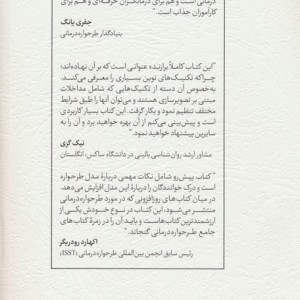 درمانی است و هم برای درمانگران حرفه‌ای و هم برای
کارآموزان جذاب است."
جفری یانگ
بنیادگذار طرحواره‌درمانی
"این کتاب کاملاً برازندهٔ عنوانی است که بر آن نهاده‌اند؛
چرا که تکنیک‌های نوین بسیاری را معرفی می‌کند،
به‌خصوص آن دسته از تکنیک‌هایی که شامل مداخلات
مبتنی بر تصویرسازی هستند و می‌توان آنها را طبق شرایط
مختلف تنظیم نمود و بکار گرفت. این کتاب بسیار کاربردی
است و پیش‌بینی می‌کنم از آن بهره خواهید برد و آن را به
سایرین پیشنهاد خواهید نمود."
نیک گری
مشاور ارشد روان‌شناسی بالینی در دانشگاه ساکس، انگلستان
"کتاب پیش‌رو شامل نکات مهمی دربارهٔ مدل طرحواره
است و درک خوانندگان را دربارهٔ این مدل افزایش می‌دهد.
در میان کتاب‌های روزافزونی که در مورد طرحواره‌درمانی
منتشر می‌شود، این کتاب در نوع خودش یکی از
ارزشمندترین کتاب‌هاست و باید آن را در زمرهٔ کتاب‌های
جامع طرحواره‌درمانی گنجاند."
اکهارد رودیگر
رئیس سابق انجمن بین‌المللی طرحواره‌درمانی (ISST)